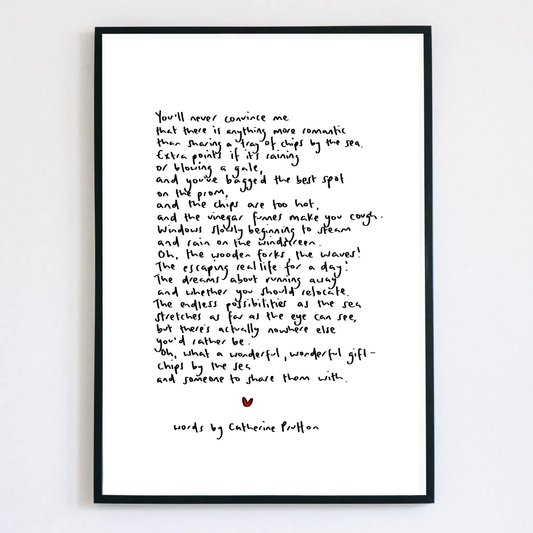 You'll never convince me
that there is anything more romantic
than sharing a tray of chips by the sea.
Extra points if it's raining
or blowing a gale,
and you've bagged the best spot
on the prom,
and the chips are too hot,
and the vinegar fumes make you cough.
Windows slowly beginning to steam
and rain on the windscreen.
Oh, the wooden forks, the waves!
The escaping real life for a day!
The dreams about running away
and whether you should relocate.
The endless possibilities as the sea
stretches as far as the eye can see,
but there's actually nowhere else
you'd rather be.
Oh, what a wonderful, wonderful gift-
chips by the sea
and someone to share them with.
words by Catherine Prutton